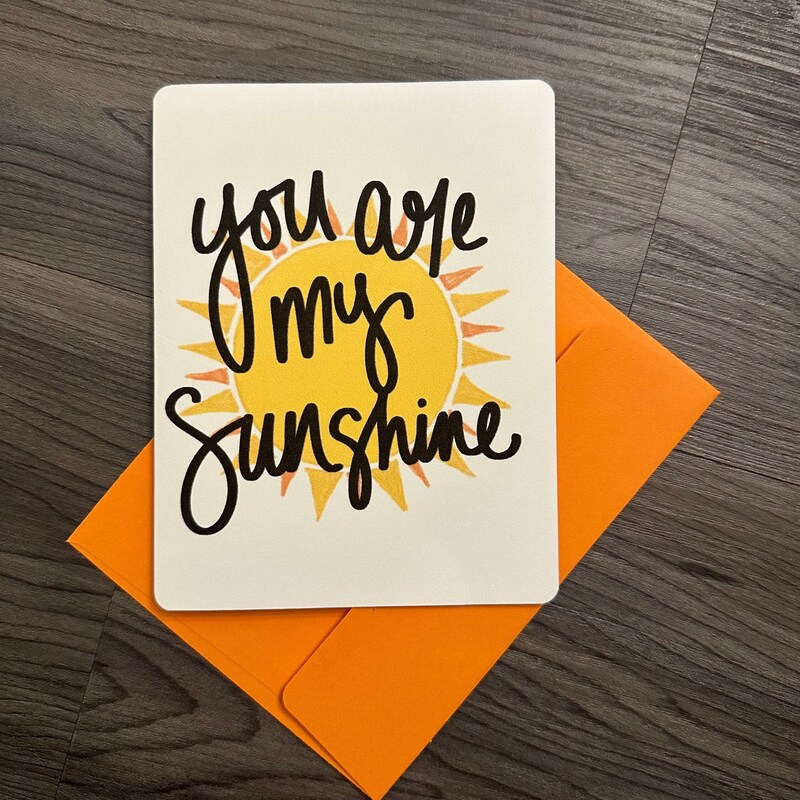 you are
my
Sunshine